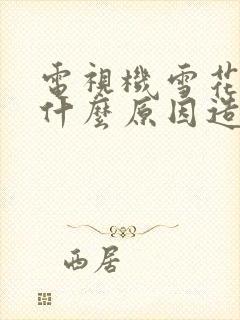 電視機雪花
什麼原因造
西居